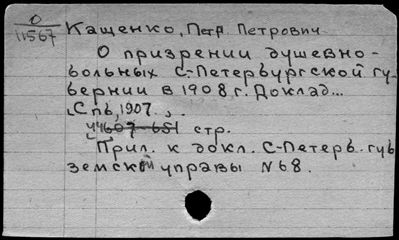 0
11567
Кащенко, Петр Петрович
О призрении душевно-
больных С-Петербургской гу-
бернии в 1908 г. Доклад...
Спб, 1907.
44607-651 стр.
Прил. к докл. С-Петерб. губ
земской управы №68.